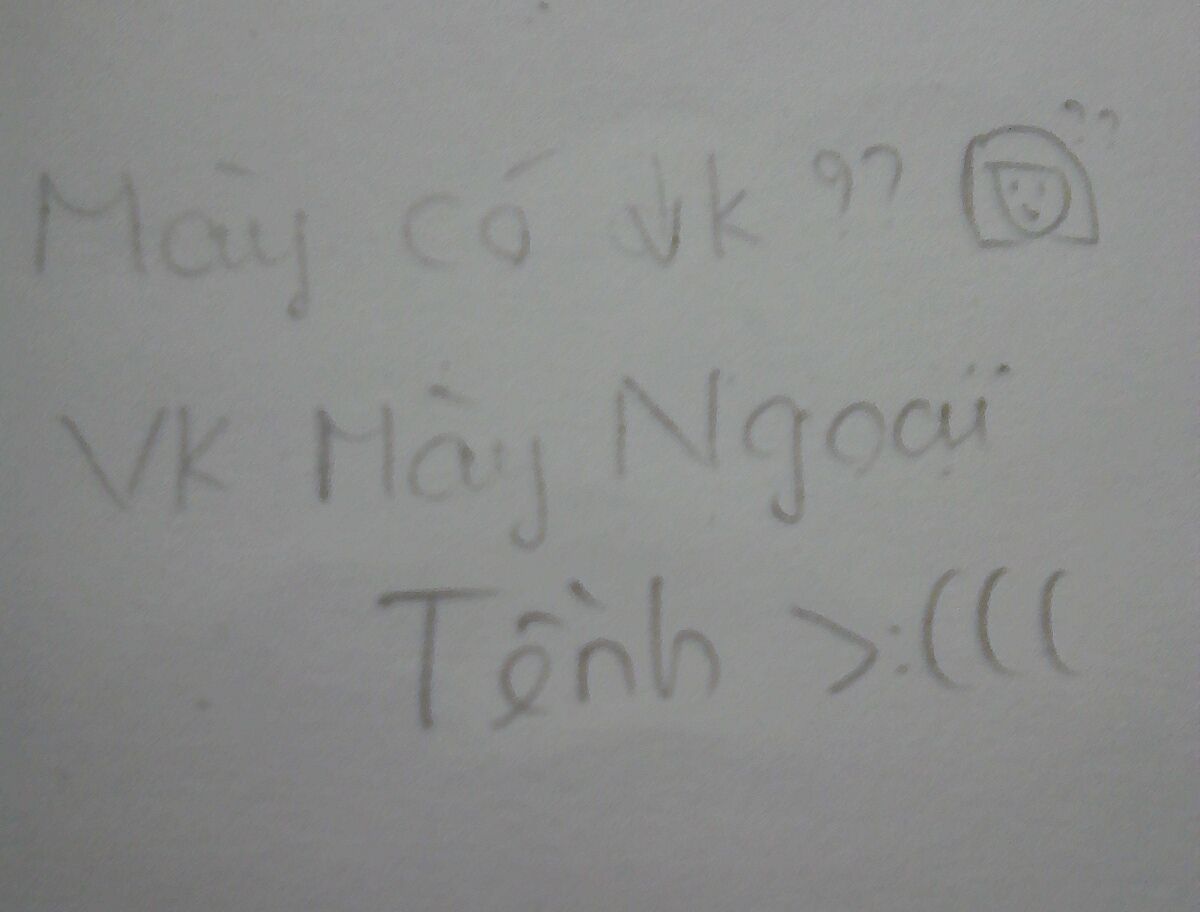 Mày có vk ?? ??
Vk Mày Ngoại
Tềnh >:(((